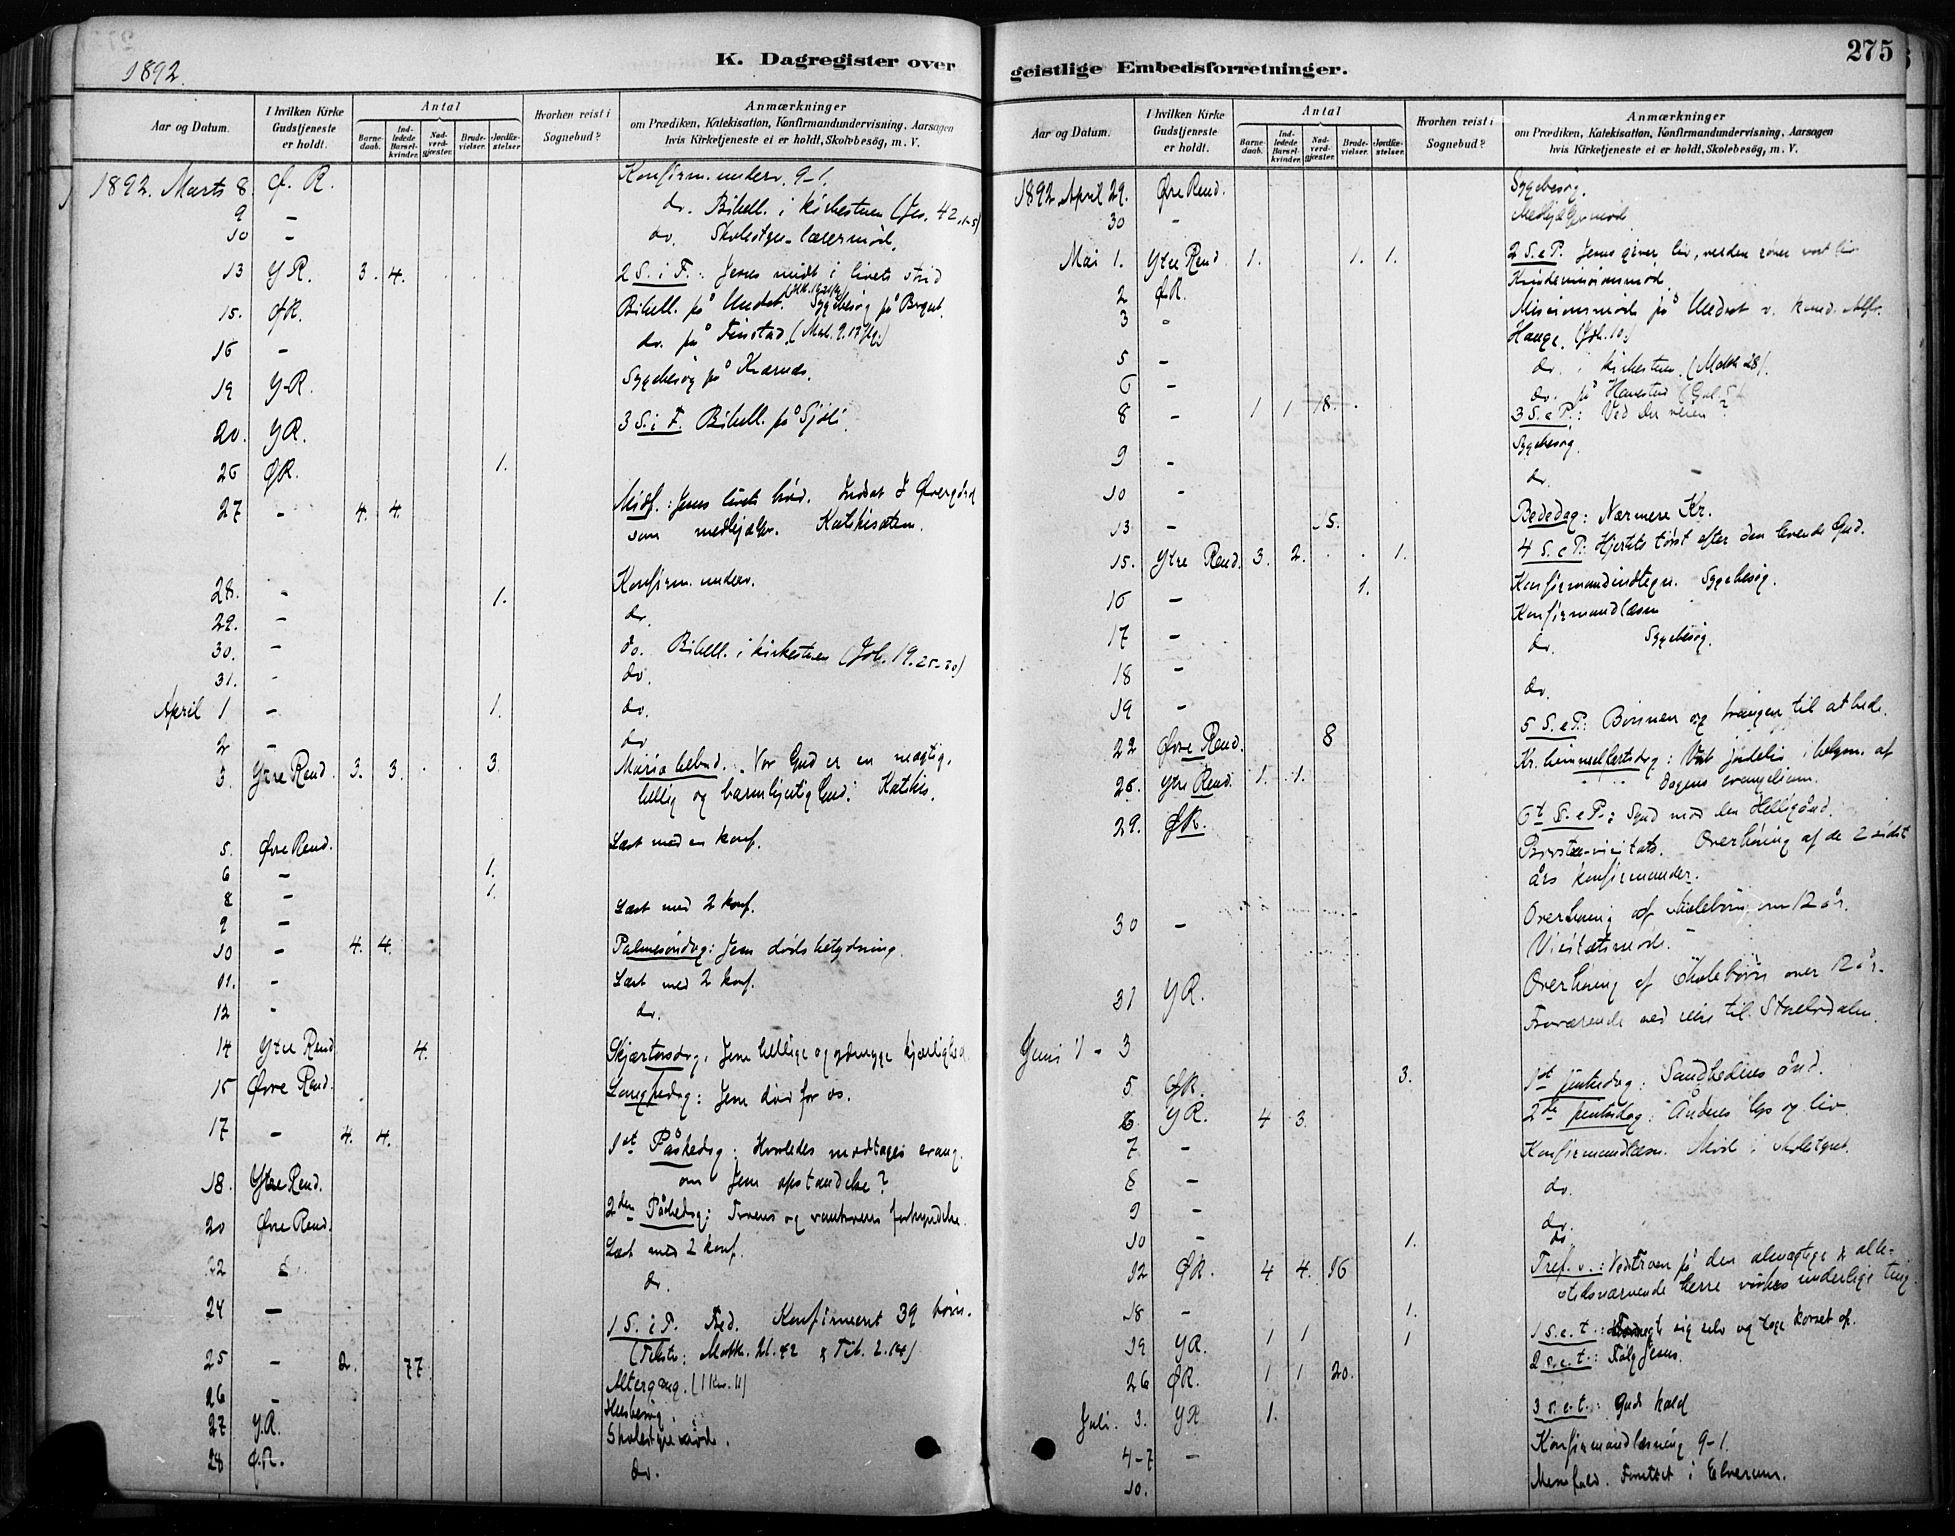 1892.
K. Dagregister over
Aar og Datum.
I hvilken Kirke Gudstjeneste er holdt.
Antal
Barne-daab.
Ind-ledede Barsel-kvinder.
Nad-verd-gjæster.
Brude-vielser.
Jordfæ-stelser
Hvorhen reist i Sognebud?
Anmærkninger
om Prædiken, Katekisation, Konfirmandundervisning, Aarsagen
hvis Kirketjeneste ei er holdt, Skolebesøg, m. V.
1892. Marts 8. Ø. R. Konfirm. underv. 9-1.
9 - do. Bibell. i kirkestuen (Jes. 42.1-5)
10 - do.
13 YR. 3. 4. 2 S. i F.: Jesus midt i livets strid
15. ØR. Bibell. på Undset. Sygebesøg på
16 - do. på Finstad.
19 Y.R. Sygebesøg på
20. YR. 3 S. i F. Bibell. på Sjøli.
26 ØR. 1.
27 - 4. 4. Midf.: Jesus livets brød. Indsat
som medhjælper.
28. - 1. Konfirm. underv.
29. - do.
30. - do. Bibell. i kirkestuen (Joh. 19. 25-30)
31. - do.
April 1 - 1. do.
2 - do
3. Ytre Rend. 3. 3. 3. Mariæ bebud. Vor Gud er en mægtig,
hellig og barmhjertig Gud. Katekis.
5. Øvre Rend. Læst med en konf.
6 - 1.
8 - 1.
9 - Læst med 2 konf.
10 - 4. 4. Palmesøndag: Jesu døds betydning.
11. - Læst med 2 konf.
12 - do.
14 Ytre Rend 4. Skjærtorsdag. Jesu hellige og ydmyge kjærlighed.
15 Øvre Rend. Langfredag: Jesu død for os.
17 - 4. 4. 1st Påskedag: Hvorledes modtages evang.
om Jesu opstandelse?
18. Ytre Rend. 2den Påskedag: Troens og vantroens forkyndelse.
20 Øvre Rend. Læst med 2 konf.
22 do.
24 - 1 S. e P. Fred. Konfirmeret 39 børn.
(Tekster: Matth. 21.42 & Tit. 2.14)
25 - 2. 77. Altergang. (1 Kor. 11)
26 - Husbesøg.
27 Y.R. Skolestyremøde.
28 Ø.R. do.
geistlige Embedsforretninger.
275
Aar og Datum.
I hvilken Kirke Gudstjeneste er holdt.
Antal
Barne-daab.
Ind-ledede Barsel-kvinder.
Nad-verd-gjæster.
Brude-vielser.
Jordfæ-stelser
Hvorhen reist i Sognebud?
Anmærkninger
om Prædiken, Katekisation, Konfirmandundervisning, Aarsagen
hvis Kirketjeneste ei er holdt, Skolebesøg, m. V.
1892. April 29. Øvre Rend. Sygebesøg.
30 - Medhjælpermøde
Mai 1. Ytre Rend. 1. 1. 1. 2 S. e P. Jesus giver liv, verden røver vort liv
2 ØR. Kvindemissionsmøde.
3 - Missionsmøde på Undset v. kand.
Hauge. (Joh. 10.)
5 - do. i kirkestuen. (Matth 28).
6 - do. på Hanestad (Gal. 5)
8 - 1 1 18. 3 S. e P.:
9 - Sygebesøg.
10 - do.
13 - 15. Bededag: Nærmere Kr.
15. Ytre Rend. 3. 2. 1. 4 S. e P: Hjertets tørst efter den levende Gud.
16 - 1. Konfirmandindtegn. Sygebesøg.
17 - Konfirmandlæsn
18 - do. Sygebesøg.
19 - do.
22 Øvre Rend. 8 5 S. e P.: Bønnen og trangen til at bede.
26. Ytre Rend. 1. 1. Kr. himmelfartsdag: Vort jordeliv i belysn. af
dagens evangelium.
29. ØR. 6te S. e P.: Synd mod den Helligånd.
Provstevisitats. Overhøring af de 2 sidste
års konfirmander.
30 - Overhøring af skolebørn over 12 år.
Visitatsmøde.
31 YR. Overhøring af skolebørn over 12 år.
Juni 1 - 3 Fraværende ved reise til Storelvdalen.
5 ØR. 3. 1st pintsedag: Sandhedens ånd.
6 YR. 4 3. 2den pintsedag: Åndens lys og liv
7 - Konfirmandlæsn. Møde i skolestyret.
8 - do.
9 - do.
10 - 1. do
12 ØR. 4 4. 16 Tref. s.: Ved Troen på den almægtige & alle-
stedsnærværende herre virkes underlige ting.
18 - 1.
19 YR. 1 1 1 1 S. e. t.: sig selv og tage korset op.
26 ØR. 1 1 20. 2 S. e. t.: Følg Jesus.
Juli. 3. YR 1. 3 S. e. t.: Guds kald
4-7 - Konfirmandlæsning 9-1.
10. Messefald. Forrettet i Elverum.